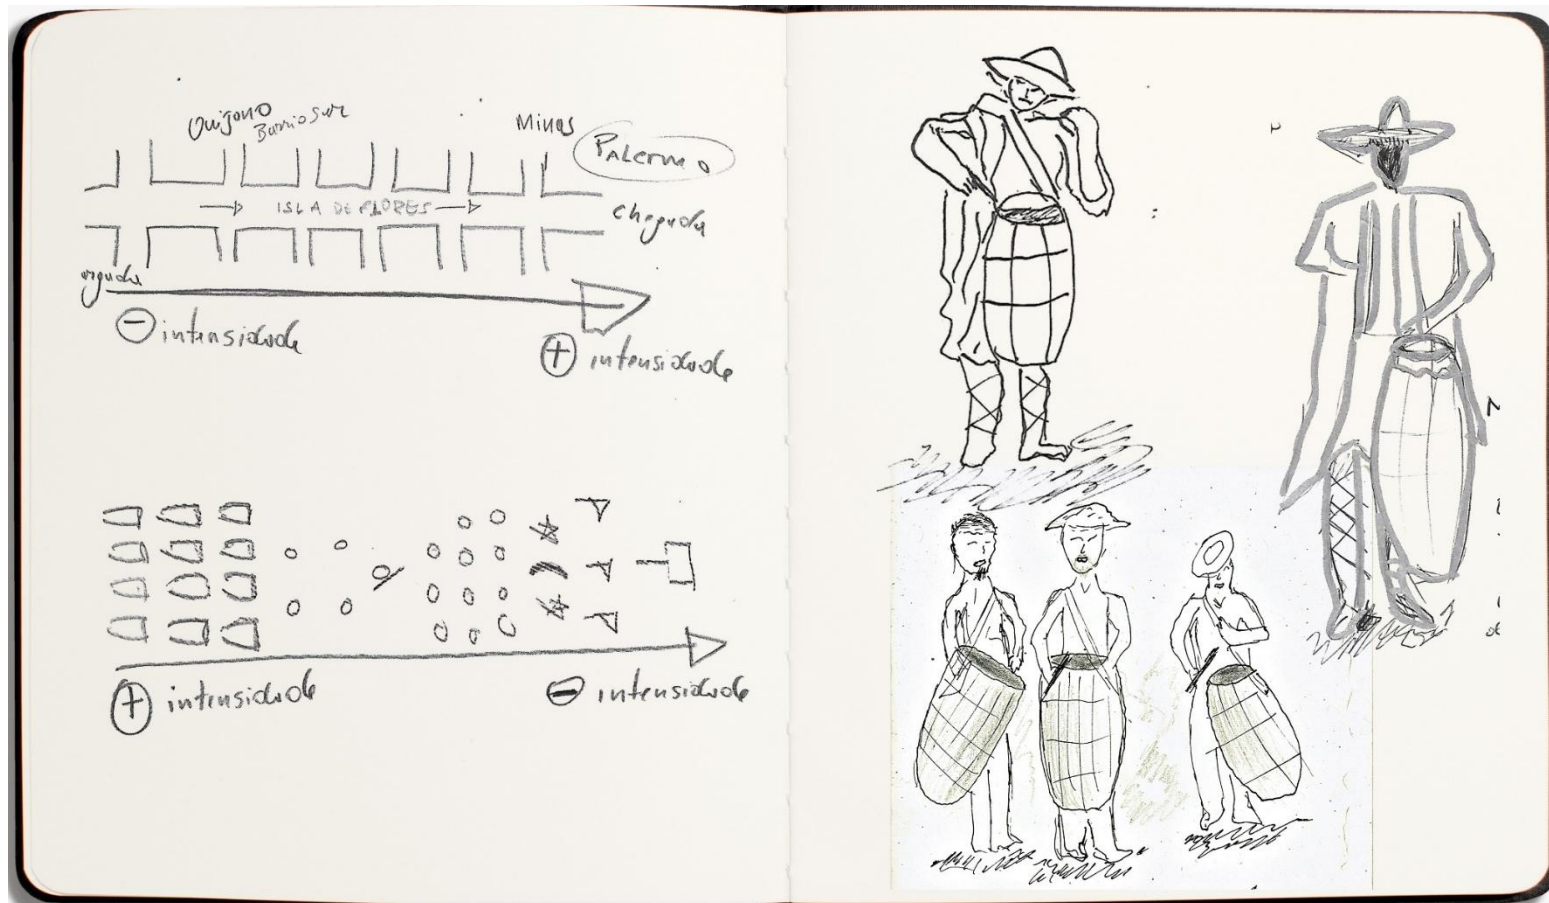 Barrio Sur
Minas
PALermo
→ ISLA DE FLORES →
chegada
− intensidade
+ intensidade
+ intensidade
− intensidade